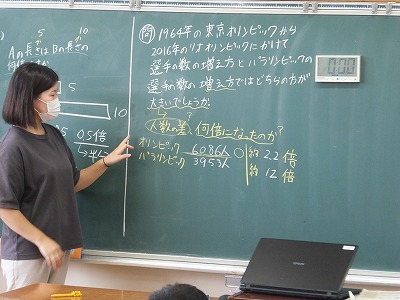 5 10
Aの長さはBの長さの
5
10
0.5倍
↳半分
問 1964年の東京オリンピックから
2016年のリオオリンピックにかけて
選手の数の増え方とパラリンピックの
選手の数の増え方ではどちらの方が
大きいでしょうか。
人数の差、何倍になったのか?
オリンピック 6086人 ○ 約2.2倍
パラリンピック 3953人 約12倍
0:00